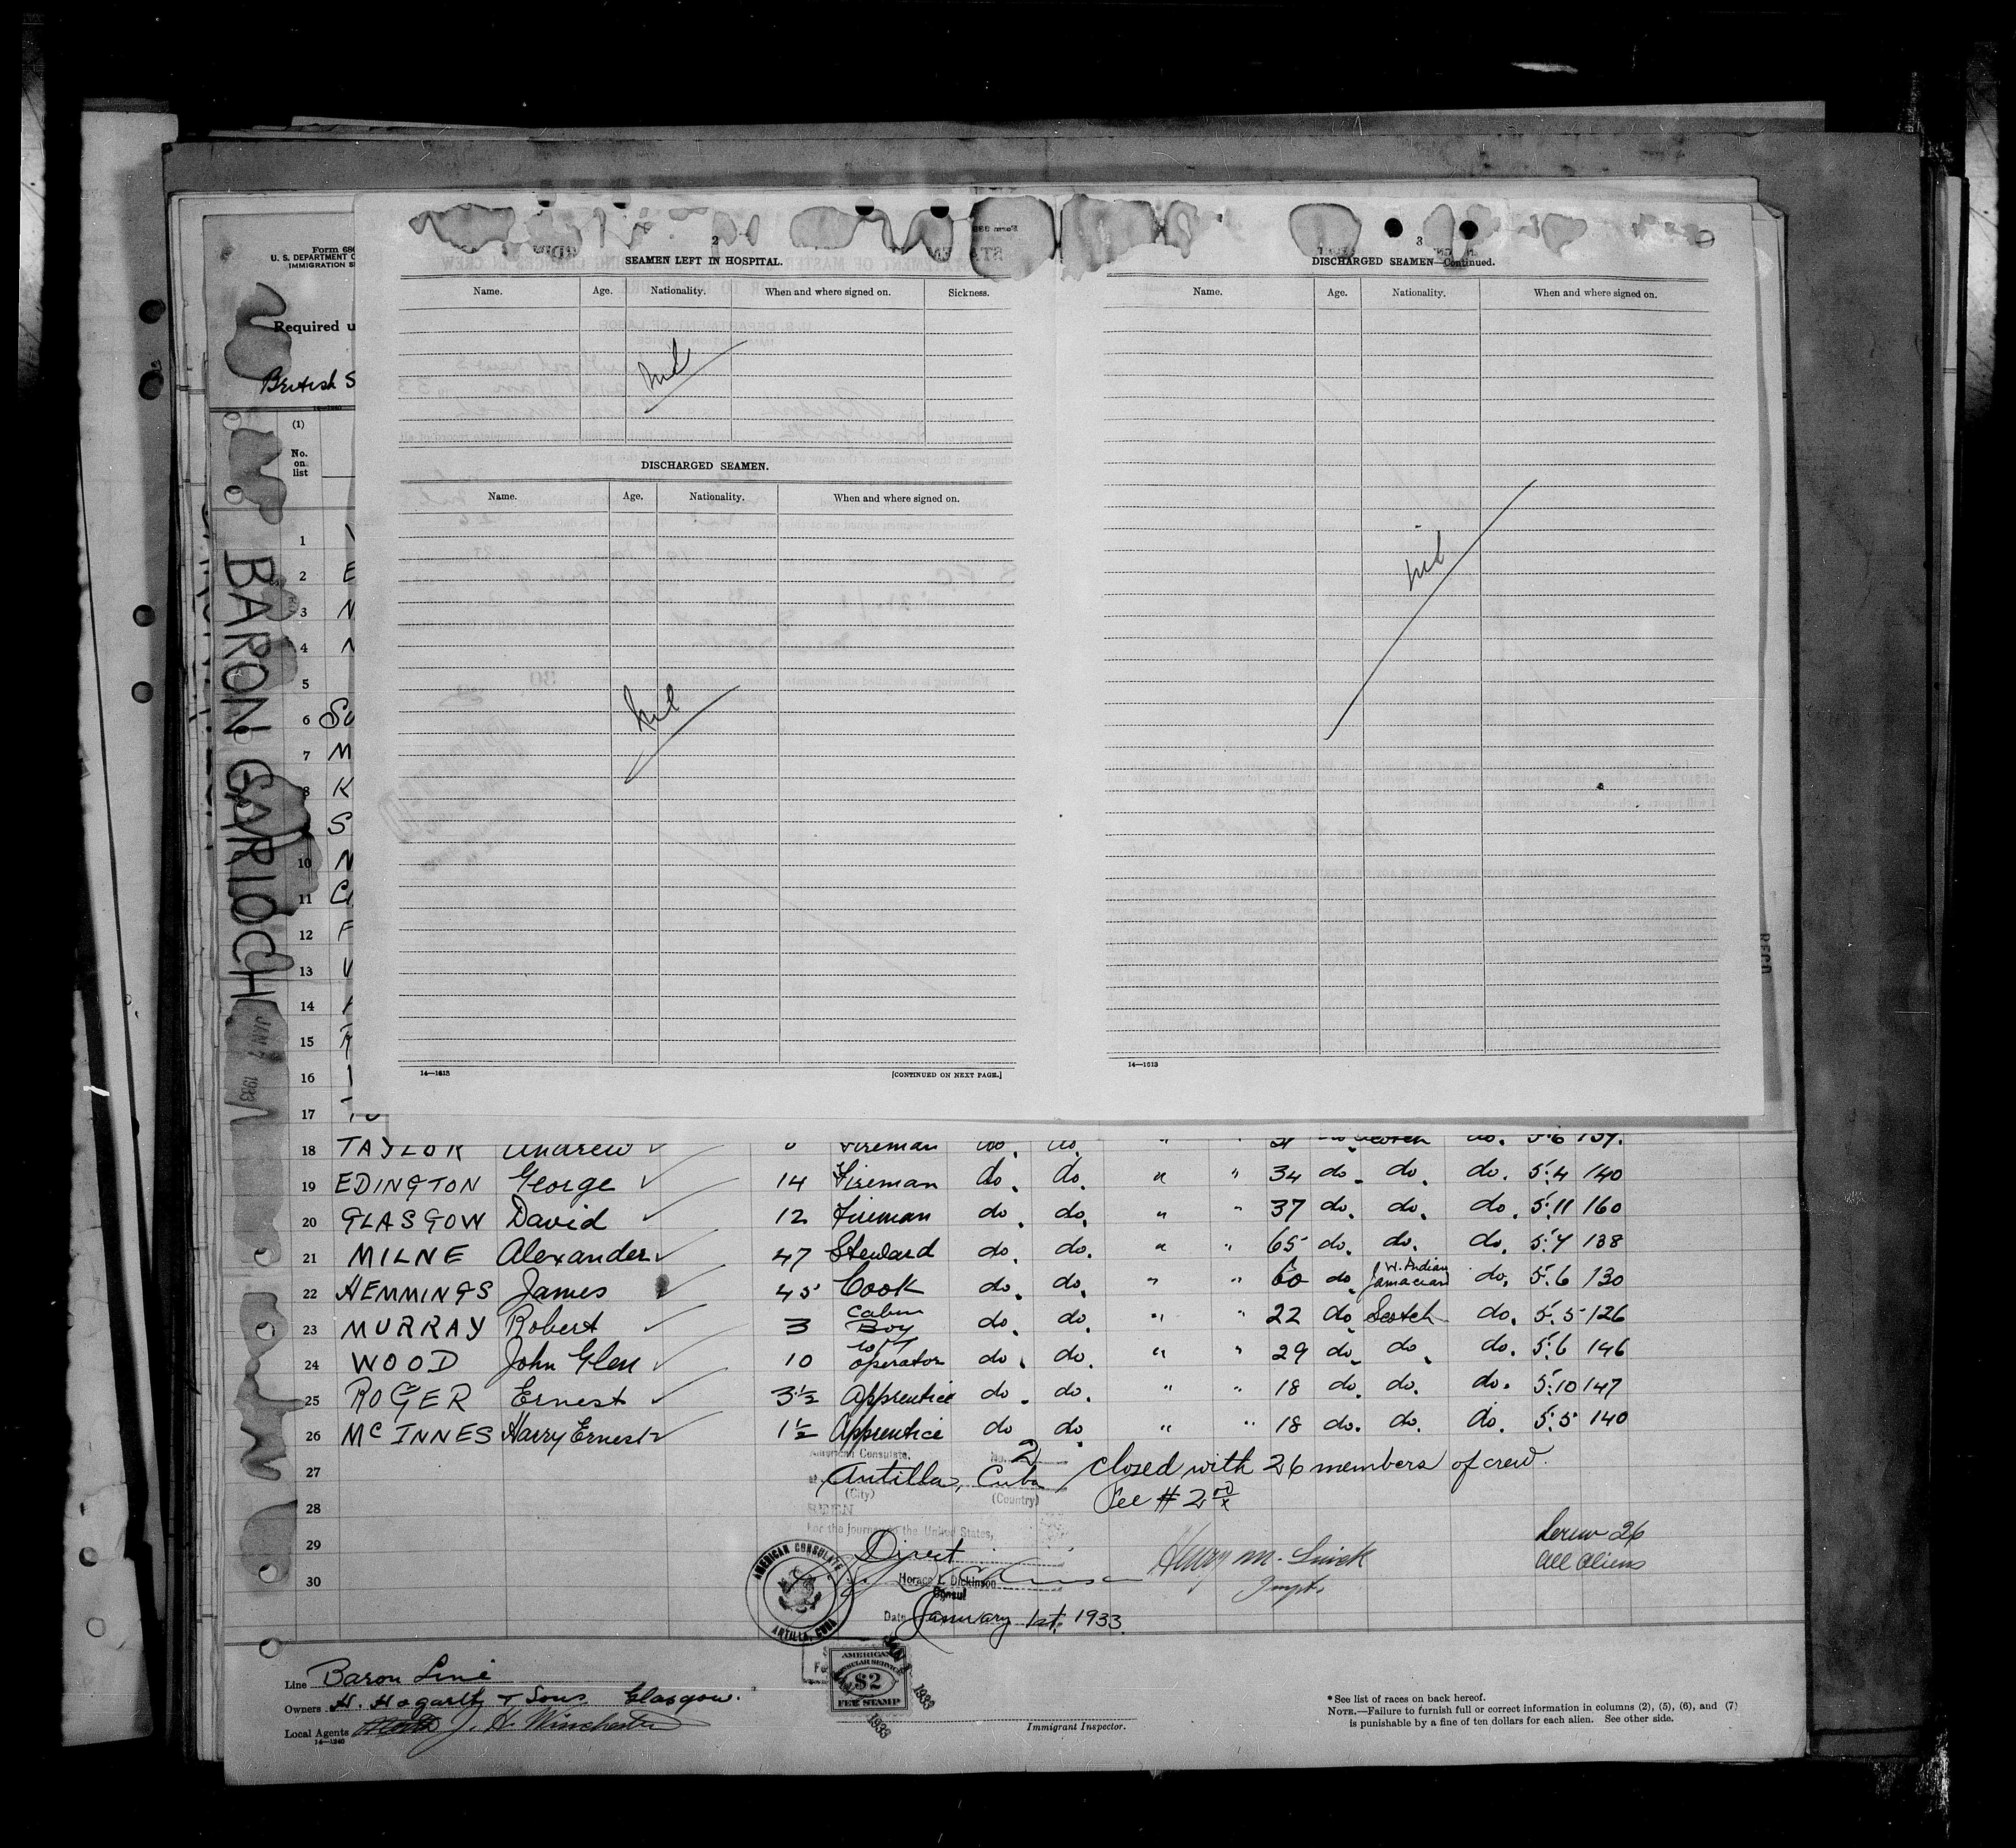 2
SEAMEN LEFT IN HOSPITAL.
Name. Age. Nationality. When and where signed on. Sickness.
nil
DISCHARGED SEAMEN.
Name. Age. Nationality. When and where signed on.
nil
14—1613 [CONTINUED ON NEXT PAGE.]
3
DISCHARGED SEAMEN—Continued.
Name. Age. Nationality. When and where signed on.
nil
14—1613
Form 68
U. S. DEPARTMENT O
IMMIGRATION S
Required u
British S
14—1240
(1)
No. on list
BARON GARIOCH
JAN 7 1933
RECD
1
2 E
3 N
4
5
6 SU
7 M
8 K
9 S
10 N
11
12 F
13
14
15
16
17
18 TAYLOR Andrew Fireman do. do. " " Scotch do. 5.6 139.
19 EDINGTON George 14 Fireman do. do. " " 34 do. do. do. 5.4 140
20 GLASGOW David 12 Fireman do. do. " " 37 do. do. do. 5.11 160
21 MILNE Alexander 47 Steward do. do. " " 65 do. do. do. 5.4 138
22 HEMMINGS James 45 Cook do. do. " " 60 do. W. Indian Jamacian do. 5.6 130
23 MURRAY Robert 3 Cabin Boy do. do. " " 22 do. Scotch do. 5.5 126
24 WOOD John Glen 10 W/T operator do. do. " " 29 do. do. do. 5.6 146
25 ROGER Ernest 3½ Apprentice do. do. " " 18 do. do. do. 5.10 147
26 McINNES Harry Ernest 1½ Apprentice do do. " " 18 do. do. do. 5.5 140
American Consulate. No. 2
27 Antilla, Cuba Closed with 26 members of crew.
(City) (Country) Fee # 2 00/x
28 SEEN
For the journey to the United States,
29 Direct Henry M. Crew 26
Horace J. Dickinson Inspt. All Aliens
30 Consul
Date January 1st, 1933.
AMERICAN CONSULATE
ANTILLA, CUBA
AMERICAN
CONSULAR SERVICE
$2
FEE STAMP
JAN 1 1933
1933
Line Baron Line
Owners H. Hogarth & Sons Glasgow.
Local Agents J. H. Winchester
14—1240
Immigrant Inspector.
* See list of races on back hereof.
NOTE.—Failure to furnish full or correct information in columns (2), (5), (6), and (7)
is punishable by a fine of ten dollars for each alien. See other side.